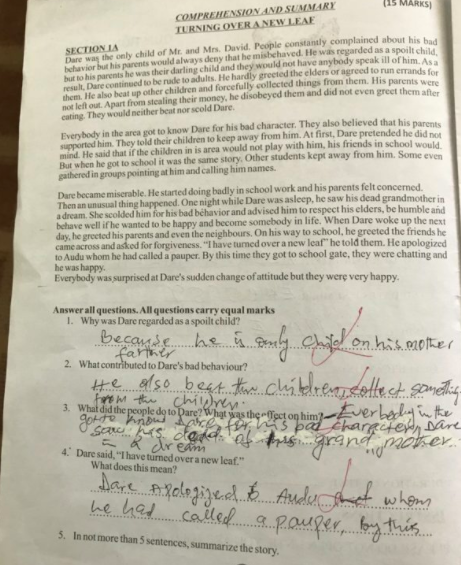 COMPREHENSION AND SUMMARY
(15 MARKS)
TURNING OVER A NEW LEAF
SECTION 1A
Dare was the only child of Mr. and Mrs. David. People constantly complained about his bad
behavior but his parents would always deny that he misbehaved. He was regarded as a spoilt child,
but to his parents he was their darling child and they would not have anybody speak ill of him. As a
result, Dare continued to be rude to adults. He hardly greeted the elders or agreed to run errands for
them. He also beat up other children and forcefully collected things from them. His parents were
not left out. Apart from stealing their money, he disobeyed them and did not even greet them after
eating. They would neither beat nor scold Dare.
Everybody in the area got to know Dare for his bad character. They also believed that his parents
supported him. They told their children to keep away from him. At first, Dare pretended he did not
mind. He said that if the children in is area would not play with him, his friends in school would.
But when he got to school it was the same story. Other students kept away from him. Some even
gathered in groups pointing at him and calling him names.
Dare became miserable. He started doing badly in school work and his parents felt concerned.
Then an unusual thing happened. One night while Dare was asleep, he saw his dead grandmother in
a dream. She scolded him for his bad behavior and advised him to respect his elders, be humble and
behave well if he wanted to be happy and become somebody in life. When Dare woke up the next
day, he greeted his parents and even the neighbours. On his way to school, he greeted the friends he
came across and asked for forgiveness. "I have turned over a new leaf" he told them. He apologized
to Audu whom he had called a pauper. By this time they got to school gate, they were chatting and
he was happy.
Everybody was surprised at Dare's sudden change of attitude but they were very happy.
Answer all questions. All questions carry equal marks
1. Why was Dare regarded as a spoilt child?
Because he is only child on his mother
farther
2. What contributed to Dare's bad behaviour?
He also beat the children, collect something
from the children
3. What did the people do to Dare? What was the effect on him? Everybody in the
got to know Dare for his bad character, Dare
saw his dead of his grand mother
a dream
4. Dare said, "I have turned over a new leaf."
What does this mean?
Dare Apologized to Audu whom
he had called a pauper, By this
5. In not more than 5 sentences, summarize the story.